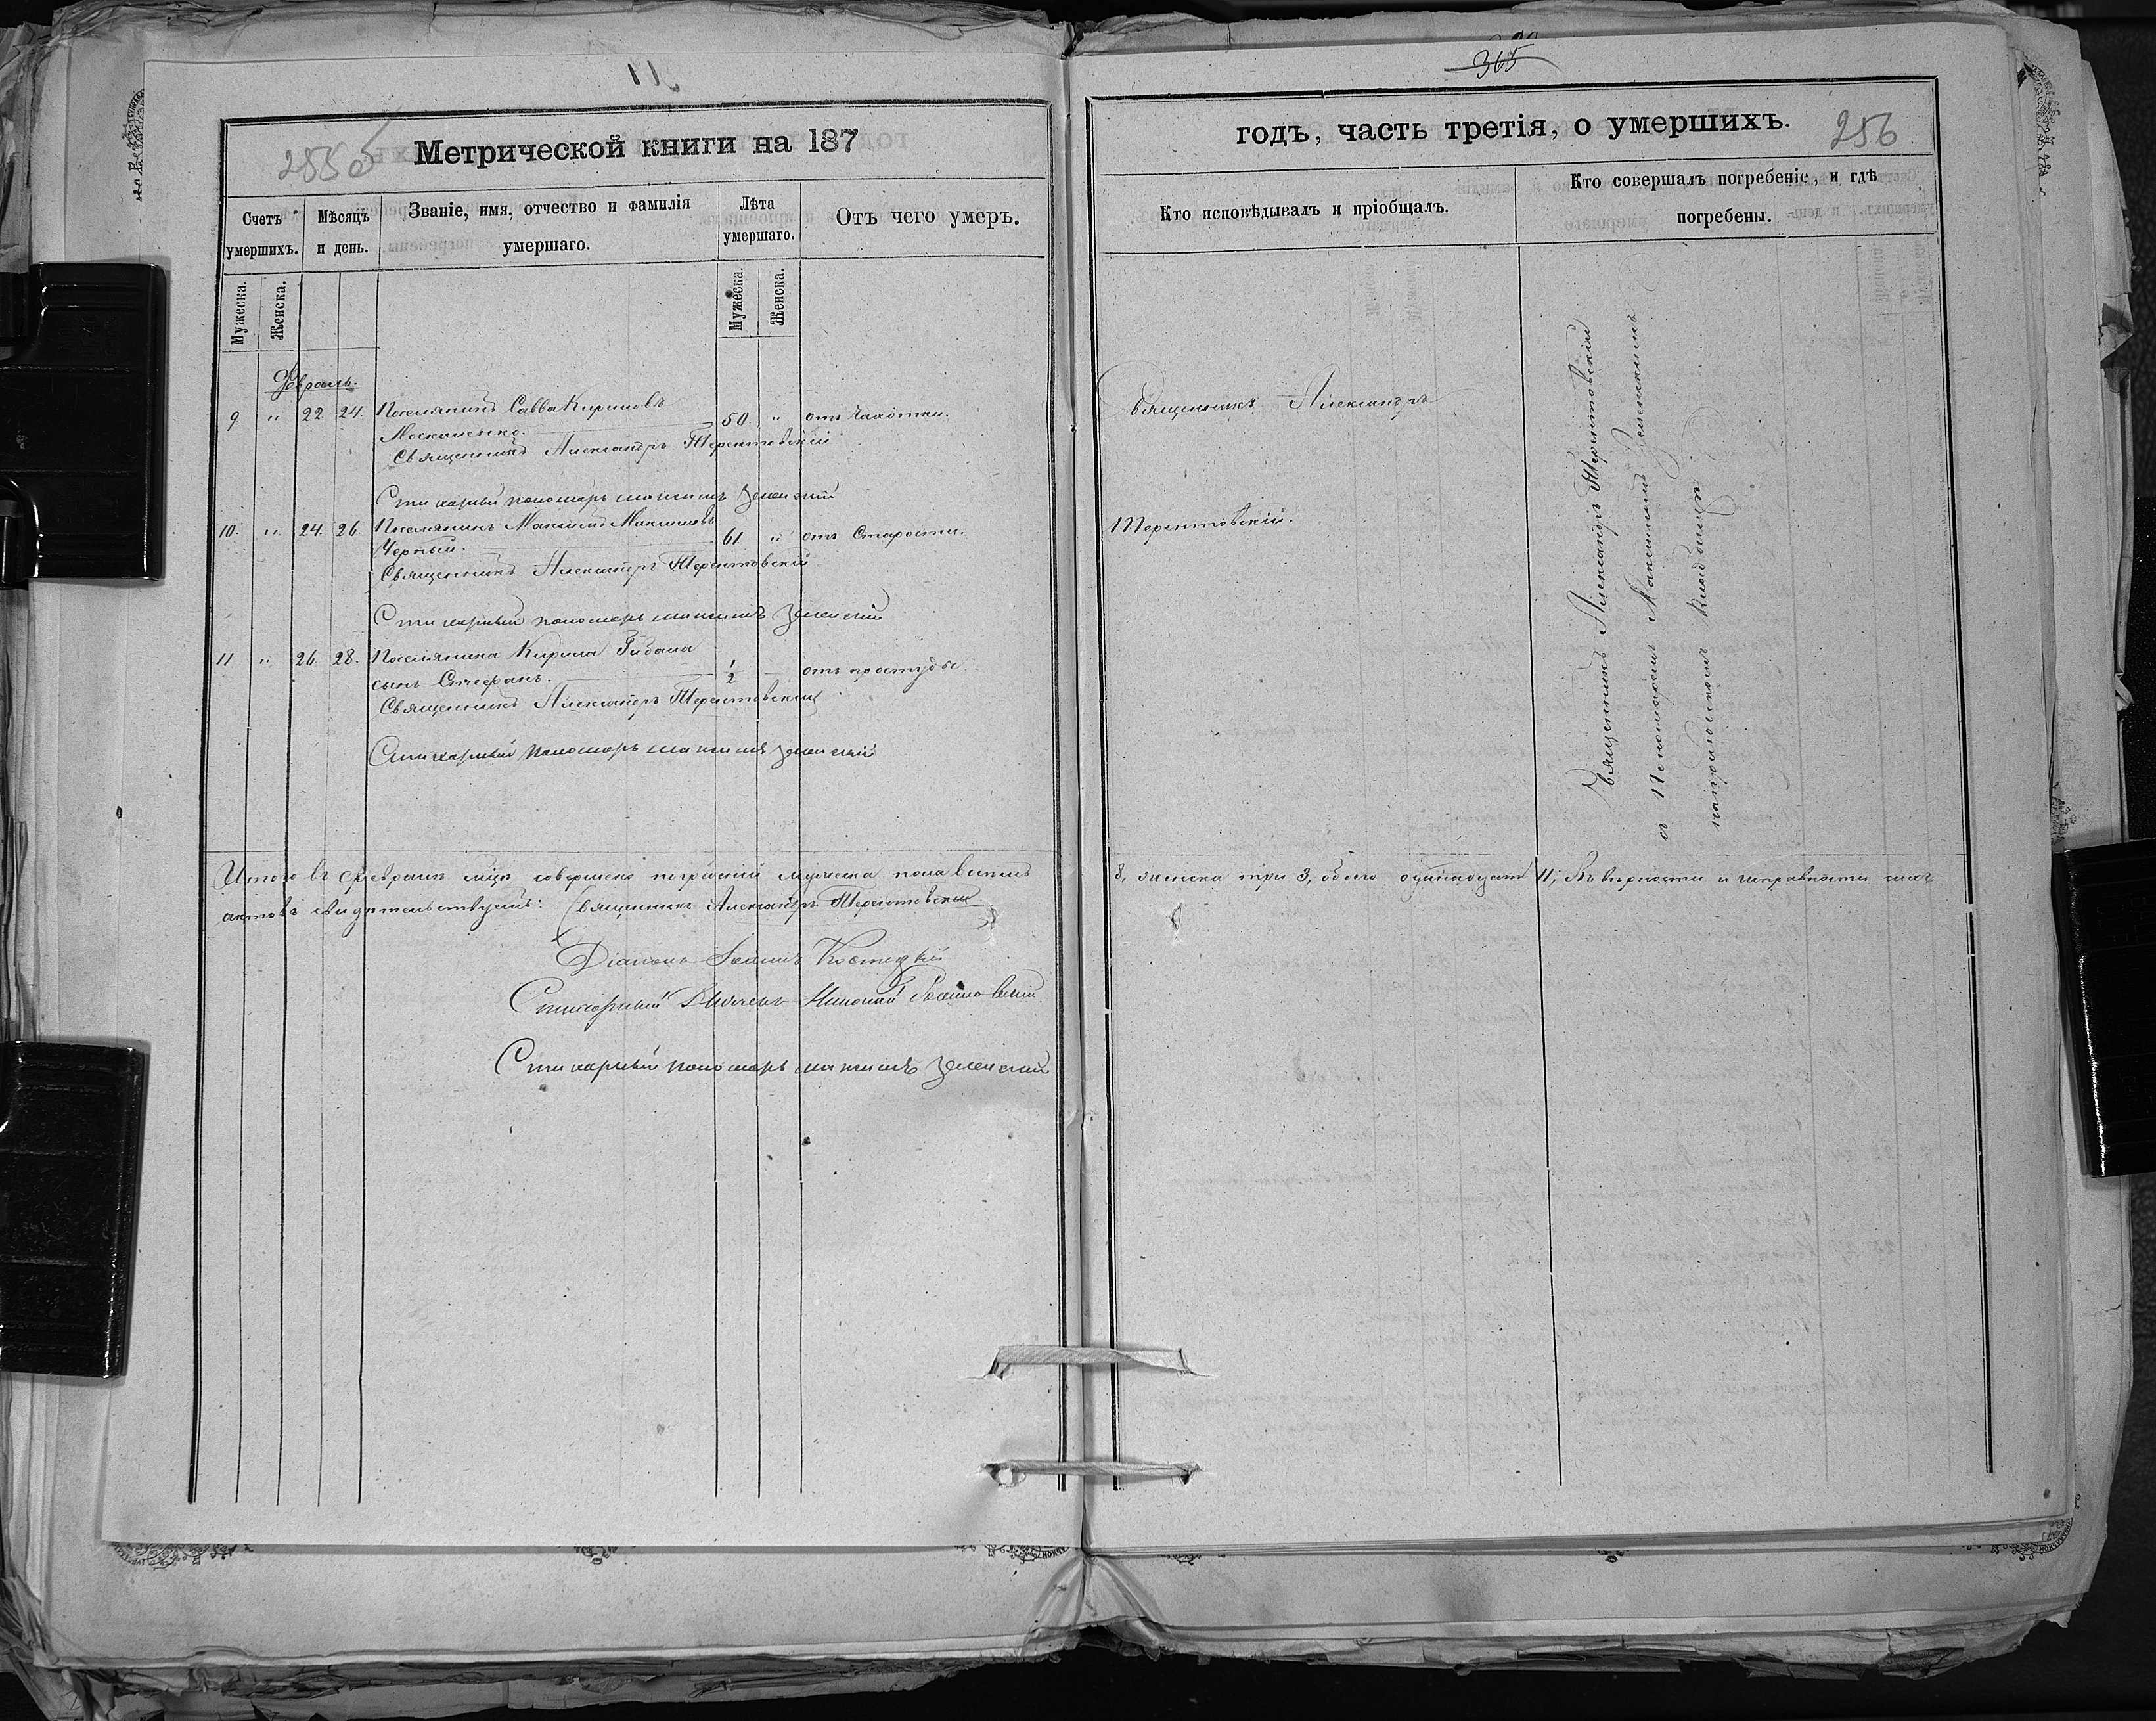 11
365
255 б
Метрической книги на 187
годъ, часть третія, о умершихъ.
256
Счетъ умершихъ.
Мѣсяцъ и день.
Званіе, имя, отчество и фамилія умершаго.
Лѣта умершаго.
Отъ чего умеръ.
Кто исповѣдывалъ и пріобщалъ.
Кто совершалъ погребеніе, и гдѣ погребены.
Мужеска.
Женска.
Мужеска.
Женска.
Февраль.
9 " 22 24. Поселянинъ Савва Кириловъ
50 " отъ чахотки.
Священникъ Александръ Терентовскій
Стихарный пономарь Максимъ Зеленский
10. " 24. 26. Поселянинъ Максимъ Максимовъ
Черный. 61 " отъ Старости.
Священникъ Александръ Терентовскій
Стихарный пономарь Максимъ Зеленский
11 " 26 28. Поселянина Кирила
сынъ Стефанъ. 1/2 отъ простуды
Священникъ Александръ Терентовскій
Стихарный пономарь Максимъ Зеленский
Священникъ Александръ
Терентовскій.
Священникъ Александръ Терентовскій
съ Пономаремъ Максимомъ Зеленскимъ
на приходскомъ кладбищѣ.
Итого въ Февралѣ мцѣ совершено погребеній мужеска пола восемь 8, женска три 3, обоего одинадцать 11; Въ вѣрности и исправности сихъ
актовъ свидѣтельствуемъ: Священникъ Александръ Терентовскій
Діаконъ Іоаннъ Костецкій
Стихарный Дьячекъ Николай
Стихарный пономарь Максимъ Зеленский